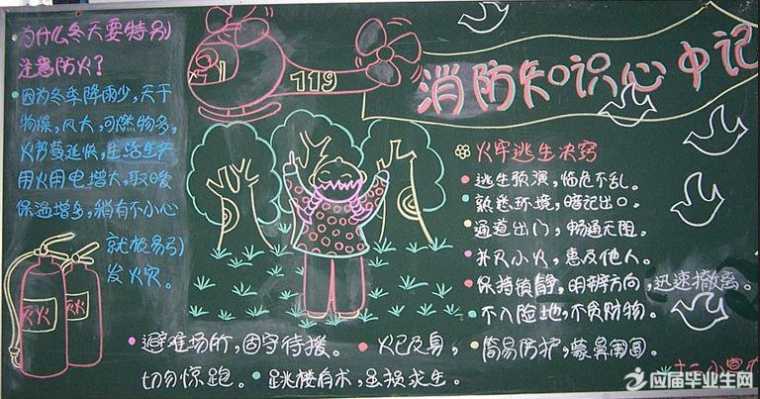 为什么冬天要特别
注意防火？
因为冬季降雨少，天干
物燥，风大，可燃物多，
火势蔓延快，生活生产
用火用电增大，取暖
保温增多，稍有不小心
就极易引
发火灾。
119
消防知识心中记
火牢逃生决窍
逃生预演，临危不乱。
熟悉环境，暗记出口。
通道出门，畅通无阻。
扑灭小火，惠及他人。
保持镇静，明辨方向，迅速撤离。
不入险地，不贪财物。
灭火
灭火
避难场所，固守待援。 火已及身，
切勿惊跑。 跳楼有术，虽损求生。
简易防护，蒙鼻匍匐。
十二小
应届毕业生网